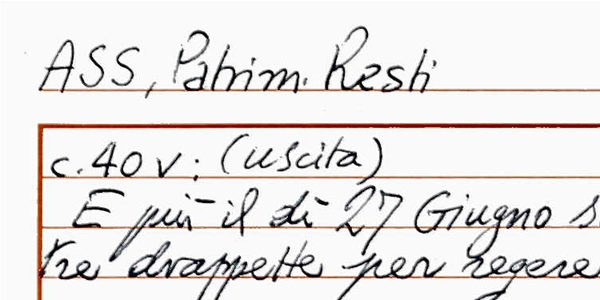 ASS, Patrim. Resti
c. 40 v: (uscita)
E più il dì 27 Giugno s
tre drappette per regere